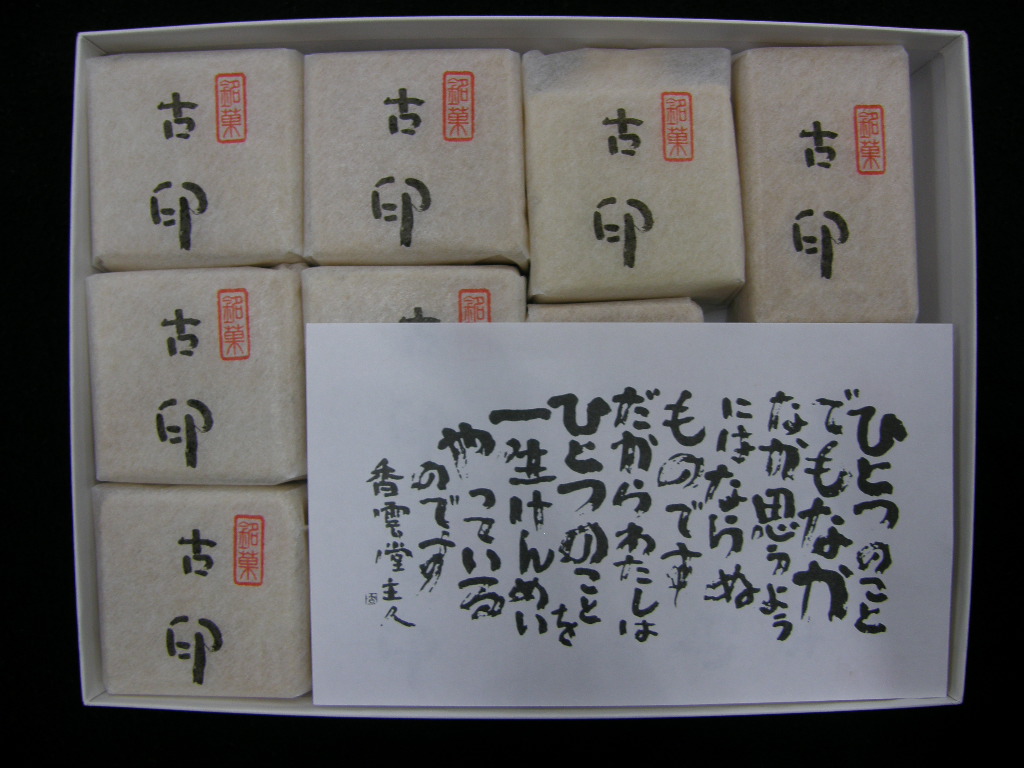 銘菓
古印
銘菓
古印
銘菓
古印
銘菓
古印
銘菓
古印
銘
古
銘菓
古印
ひとつのこと
でもなか
なか思うよう
にはならぬ
ものです
だからわたしは
ひとつのことを
一生けんめい
やっている
のです
香雲堂主人